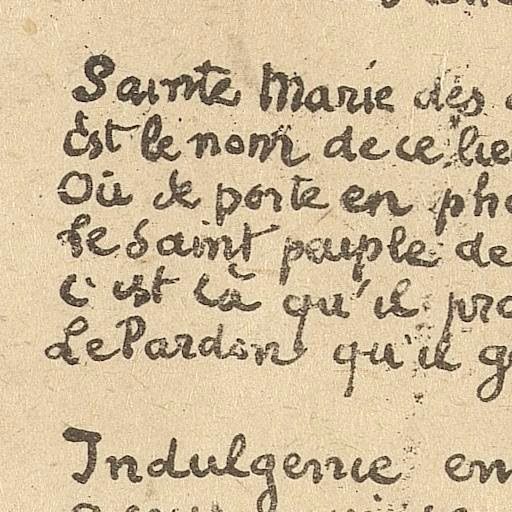 Sainte Marie des
Est le nom de ce lieu
Où se porte en
Le Saint peuple de
c'est là qu'il
Le Pardon qu'il
Indulgence en